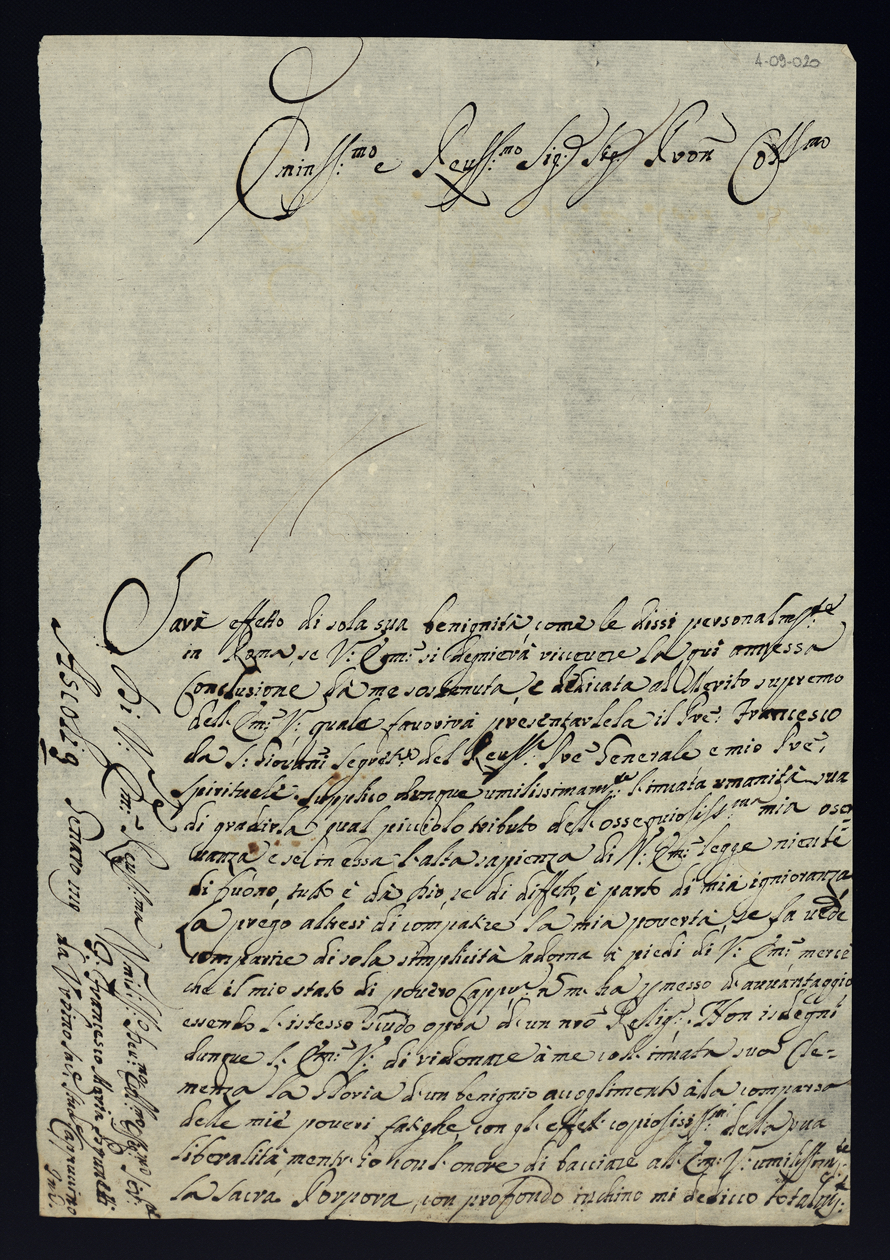 4-09-020
Eminss:mo e Reuss:mo Sig: Sig: Pron Colmo
Sarà effetto di sola sua benignità, come le dissi personalm:te
in Roma, se V: Em: si degnierà riceuere la qui annessa
Conclusione da me sostenuta, e dedicata al Merito supremo
dell' Em: V: quale favorirà presentarlela il Pre: Francesco
da S: Giovani Segret: del Reuss: Pre Generale e mio Pre:
spirituale. Supplico dunque umilissimam:te l'innata umanità sua
di gradirla qual picciolo tributo dell' ossequiosiss:ma mia osser
uanza, e se in essa l'alta sapienza di V: Em: legge niente
di buono, tutto è da Dio, se di diffeto, è parto di mia ignioranza
La prego altresi di compatire la mia povertà, se la vede
comparire di sola simplicità adorna à piedi di V: Em: mercè
che il mio stato di povero Capp: n m' ha pmesso d' auuantaggio
essendo l' istesso Scudo opra d' un nro Relig: Non isdegni
dunque l' Em: V: di ridonare à me coll' innata sua Cle=
menza la Gloria d' un benignio accoglimento à la comparsa
delle mie poveri fatighe, con gl' effetti copiosissmi della sua
liberalità, mentr' io coll' onore di bacciare all' Em: V: umilissm:te
la Sacra Porpora, con profondo inchino mi dedico totalm:te
Di V: Em: Reuss:ma
Ascoli 9 Genaro 1719
F: Francesco Maria
da
Capuccino